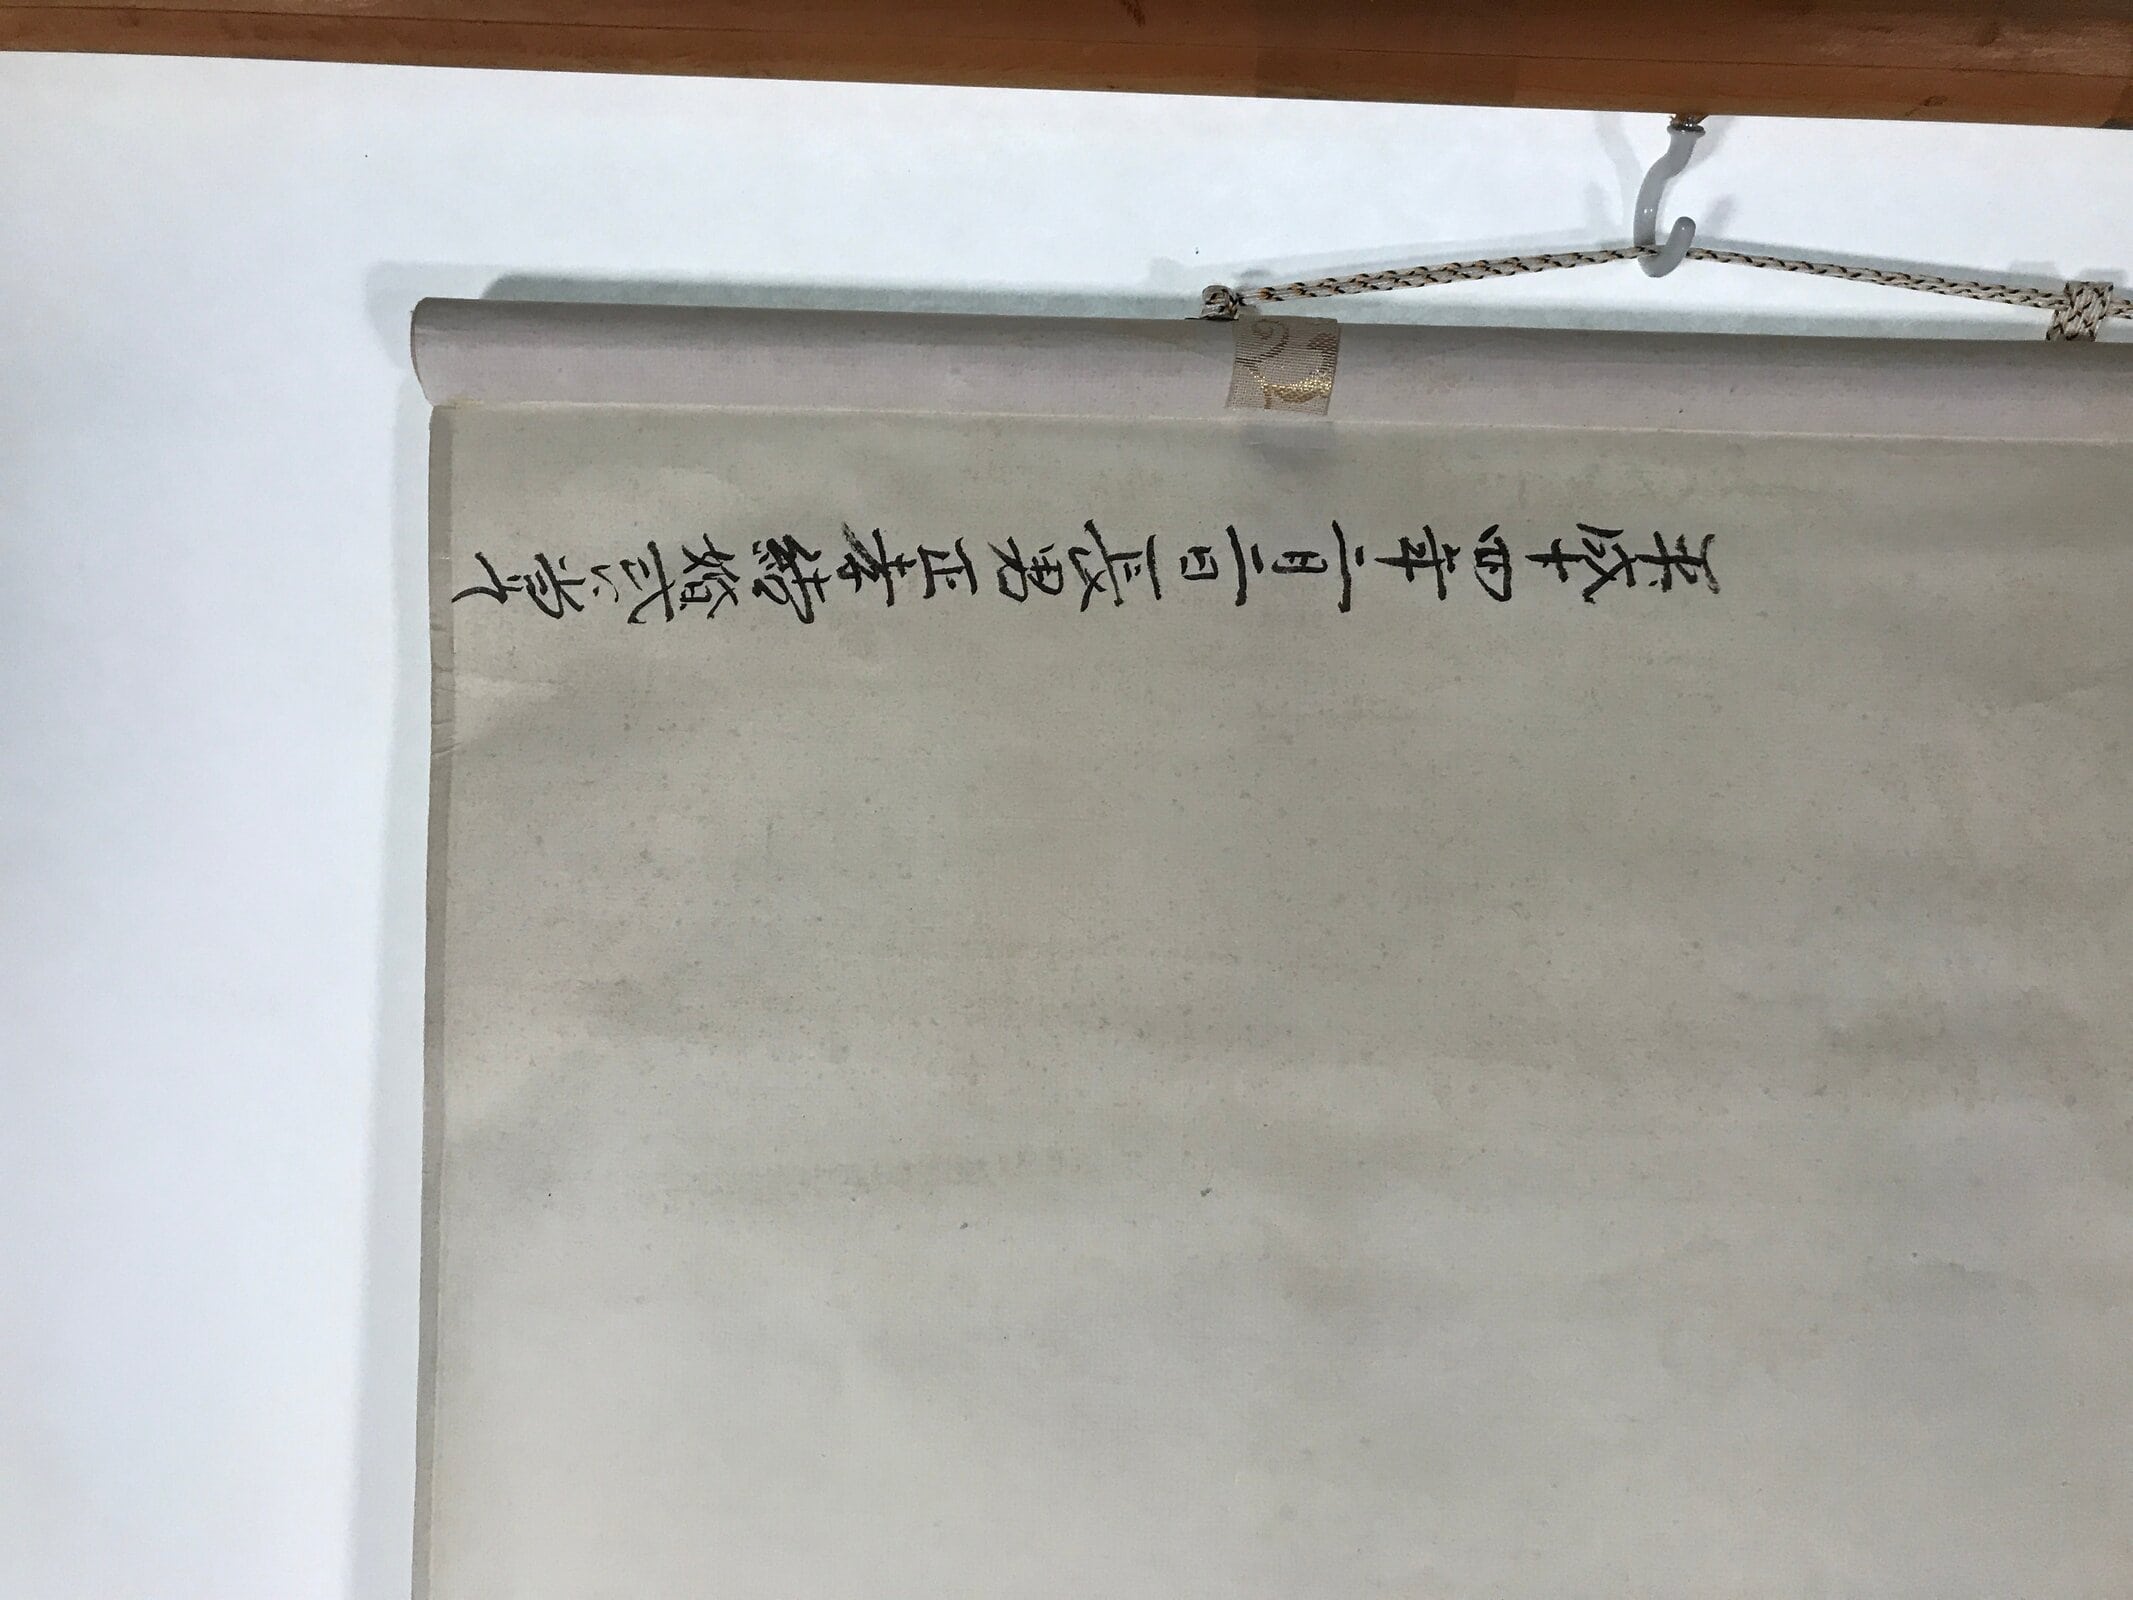 平成十四年二月二日長男正孝結婚式に当り